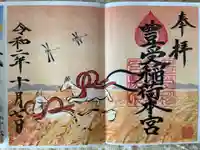 奉拝
豊受稲荷本宮
令和二年十月六日